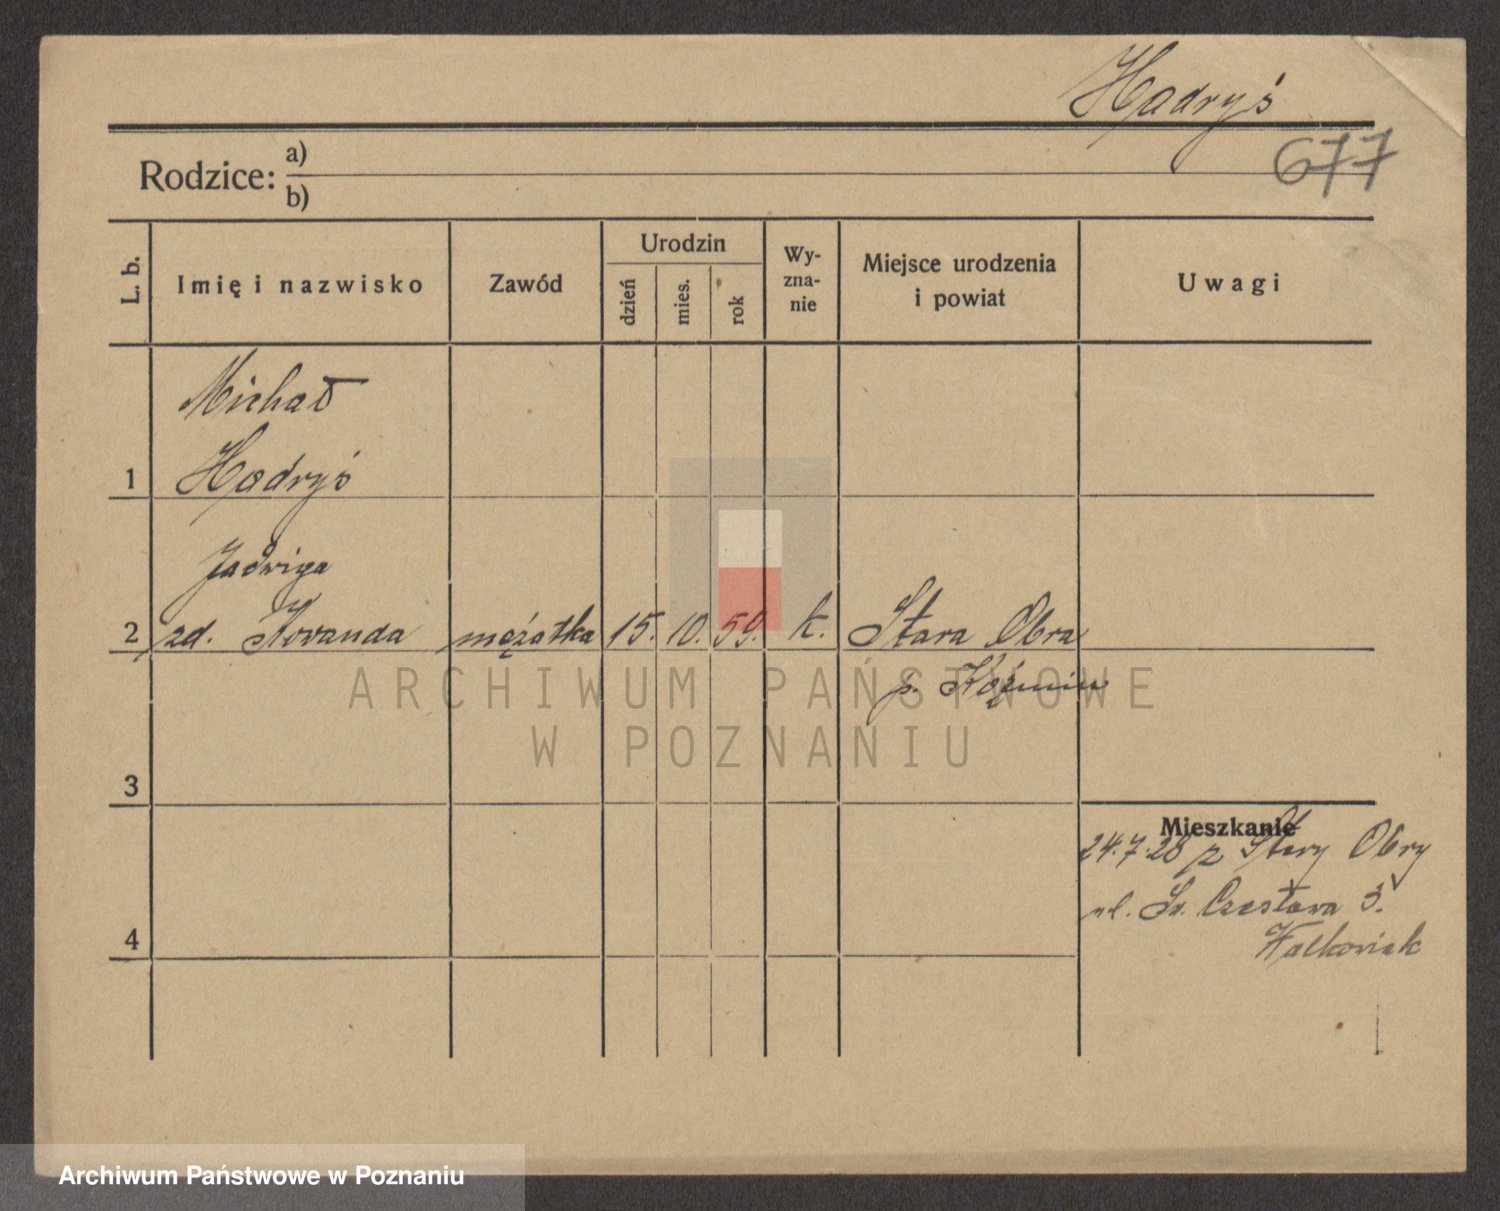 Hądryś
677
Rodzice: a)
b)
L. b.
Imię i nazwisko
Zawód
Urodzin
dzień
mies.
rok
Wy-
zna-
nie
Miejsce urodzenia
i powiat
Uwagi
Michał
1 Hądryś
Jadwiga
2 zd. Kovanda mężatka 15. 10. 59. k. Stara Obra
p. Koźmin
3
4
Mieszkanie
24.7.28 z Stary Obry
ul. Św. Czesława 3.
Walkowiak
ARCHIWUM PAŃSTWOWE
W POZNANIU
Archiwum Państwowe w Poznaniu